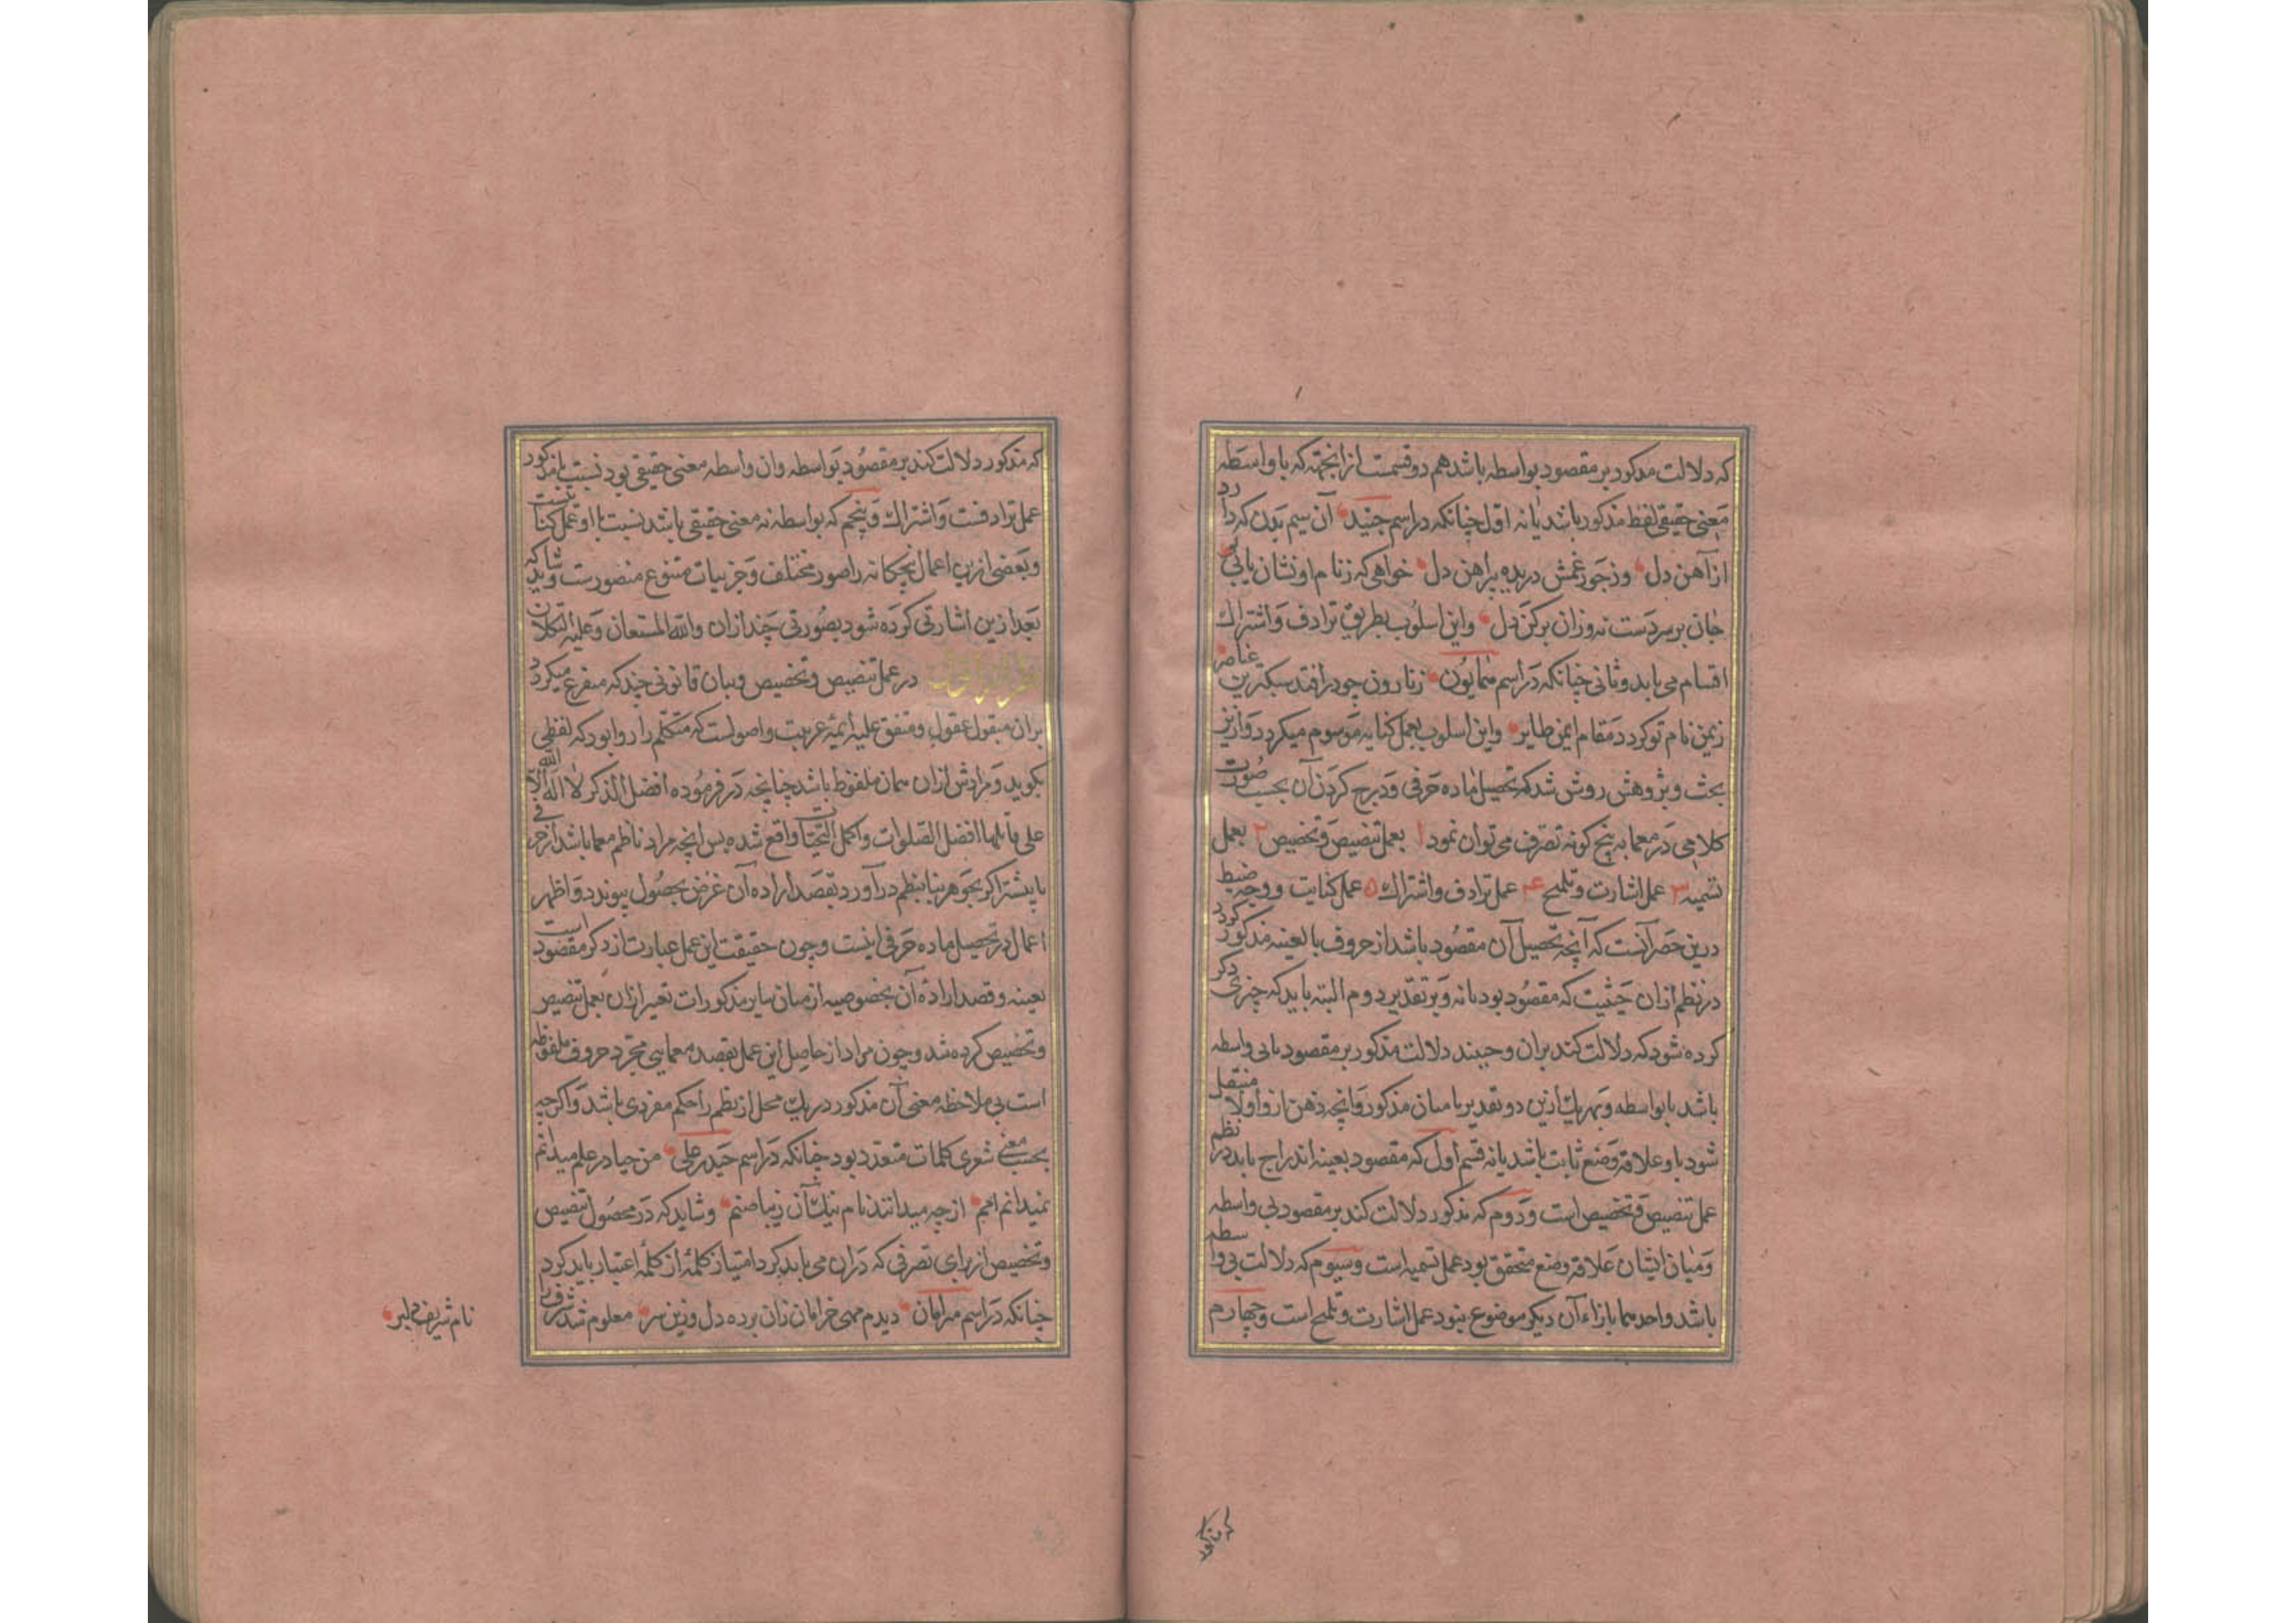 که دلالت مذکور بر مقصود بواسطه باشد هم دو قسمست از انجهته که با واسطه
معنی حقیقی لفظ مذکور باشد یا نه اول چنانکه در اسم جنید آن سیم بدن که دارد
از آهن دل وز جور غمش دریده پیراهن دل خواهی که ز نام او نشان یابی
جان بر سر دست نه وزان برکن دل واین اسلوب بطریق ترادف و اشتراک
اقسام می یابد و ثانی چنانکه در اسم همایون ز نارون چو در افتد سبکترین عناصر
زیمن نام تو کردد مقام ایمن طایر واین اسلوب بعمل کنایه موسوم میکردد و ازین
بحث و پژوهش روشن شد که تحصیل ماده حرفی و درج کردن آن بحسب صورت
کلامی در معما به پنج کونه تصرف می توان نمود ۱ بعمل تنصیص و تخصیص ۲ بعمل
تسمیه ۳ عمل اشارت و تلمیح ۴ عمل ترادف و اشتراک ۵ عمل کنایت و وجه ضبط
درین حصر آنست که آنچه تحصیل آن مقصود باشد از حروف بالعینه مذکور کردد
در نظم ازان حیثیت که مقصود بود یا نه و بر تقدیر دوم البته باید که چیزی ذکر
کرده شود که دلالت کند بران و حینئد دلالت مذکور بر مقصود یا بی واسطه
باشد یا بواسطه و بهریک ازین دو تقدیر یا میان مذکور و آنچه ذهن ازو اولا منتقل
شود باو علاقه وضع ثابت باشد یا نه قسم اول که مقصود بعینه اندراج یابد در نظم
عمل تنصیص و تخصیص است و دوم که مذکور دلالت کند بر مقصود بی واسطه
و میان ایشان علاقه وضع متحقق بود عمل تسمیه است وسیوم که دلالت بی واسطه
باشد واحدهما بازاء آن دیکر موضوع نبود عمل اشارت و تلمیح است و چهارم
که مذکور
که مذکور دلالت کند بر مقصود بواسطه وان واسطه معنی حقیقی بود نسبت با مذکور
عمل ترادفست و اشتراک و پنجم که بواسطه نه معنی حقیقی باشد نسبت با او عمل کنایتست
وبعضی ازین اعمال پنجکانه را صور مختلف و جزییات متنوع متصورست و شاید که
بعد ازین اشارتی کرده شود بصورتی چند ازان والله المستعان وعلیه التکلان
در عمل تنصیص و تخصیص و بیان قانونی چند که متفرع میکردد
بران مقبول عقول و متفق علیه ایمه عربیت و اصولست که متکلم را روا بود که لفظی
بکوید و مرادش ازان همان ملفوظ باشد چنانچه در فرموده افضل الذکر لا اله الا الله
علی قایلها افضل الصلوات واکمل التحیات واقع شده پس انچه مراد ناظم معما باشد از حرفی
یا بیشتر اکر بجوهر بنظم درآورد بقصد اراده آن غرض بحصول پیوندد و اظهر
اعمال در تحصیل ماده حرفی اینست و چون حقیقت این عمل عبارت از ذکر مقصود است
بعینه و قصد اراده آن بخصوصیه از میان سایر مذکورات تعبیر ازان بعمل تنصیص
و تخصیص کرده شد و چون مراد از حاصل این عمل بقصد معمایی مجرد حروف ملفوظه
است بی ملاحظه معنی آن مذکور در یک محل از نظم را حکم مفردی باشد واکرچه
بحسب معنی شعری کلمات متعدد بود چنانکه در اسم حیدر علی من حیا در علم میدانم
نمیدانم اهم از چه میدانند نام نیک آن زیبا صنم و شاید که در محصول تنصیص
و تخصیص از برای تصرفی که دران می باید کرد امتیاز کلمه از کلمه اعتبار باید کرد
چنانکه در اسم مرامان دیدم مهی خرامان زان برده دل وزین سر معلوم شد
نام شریف دلبر